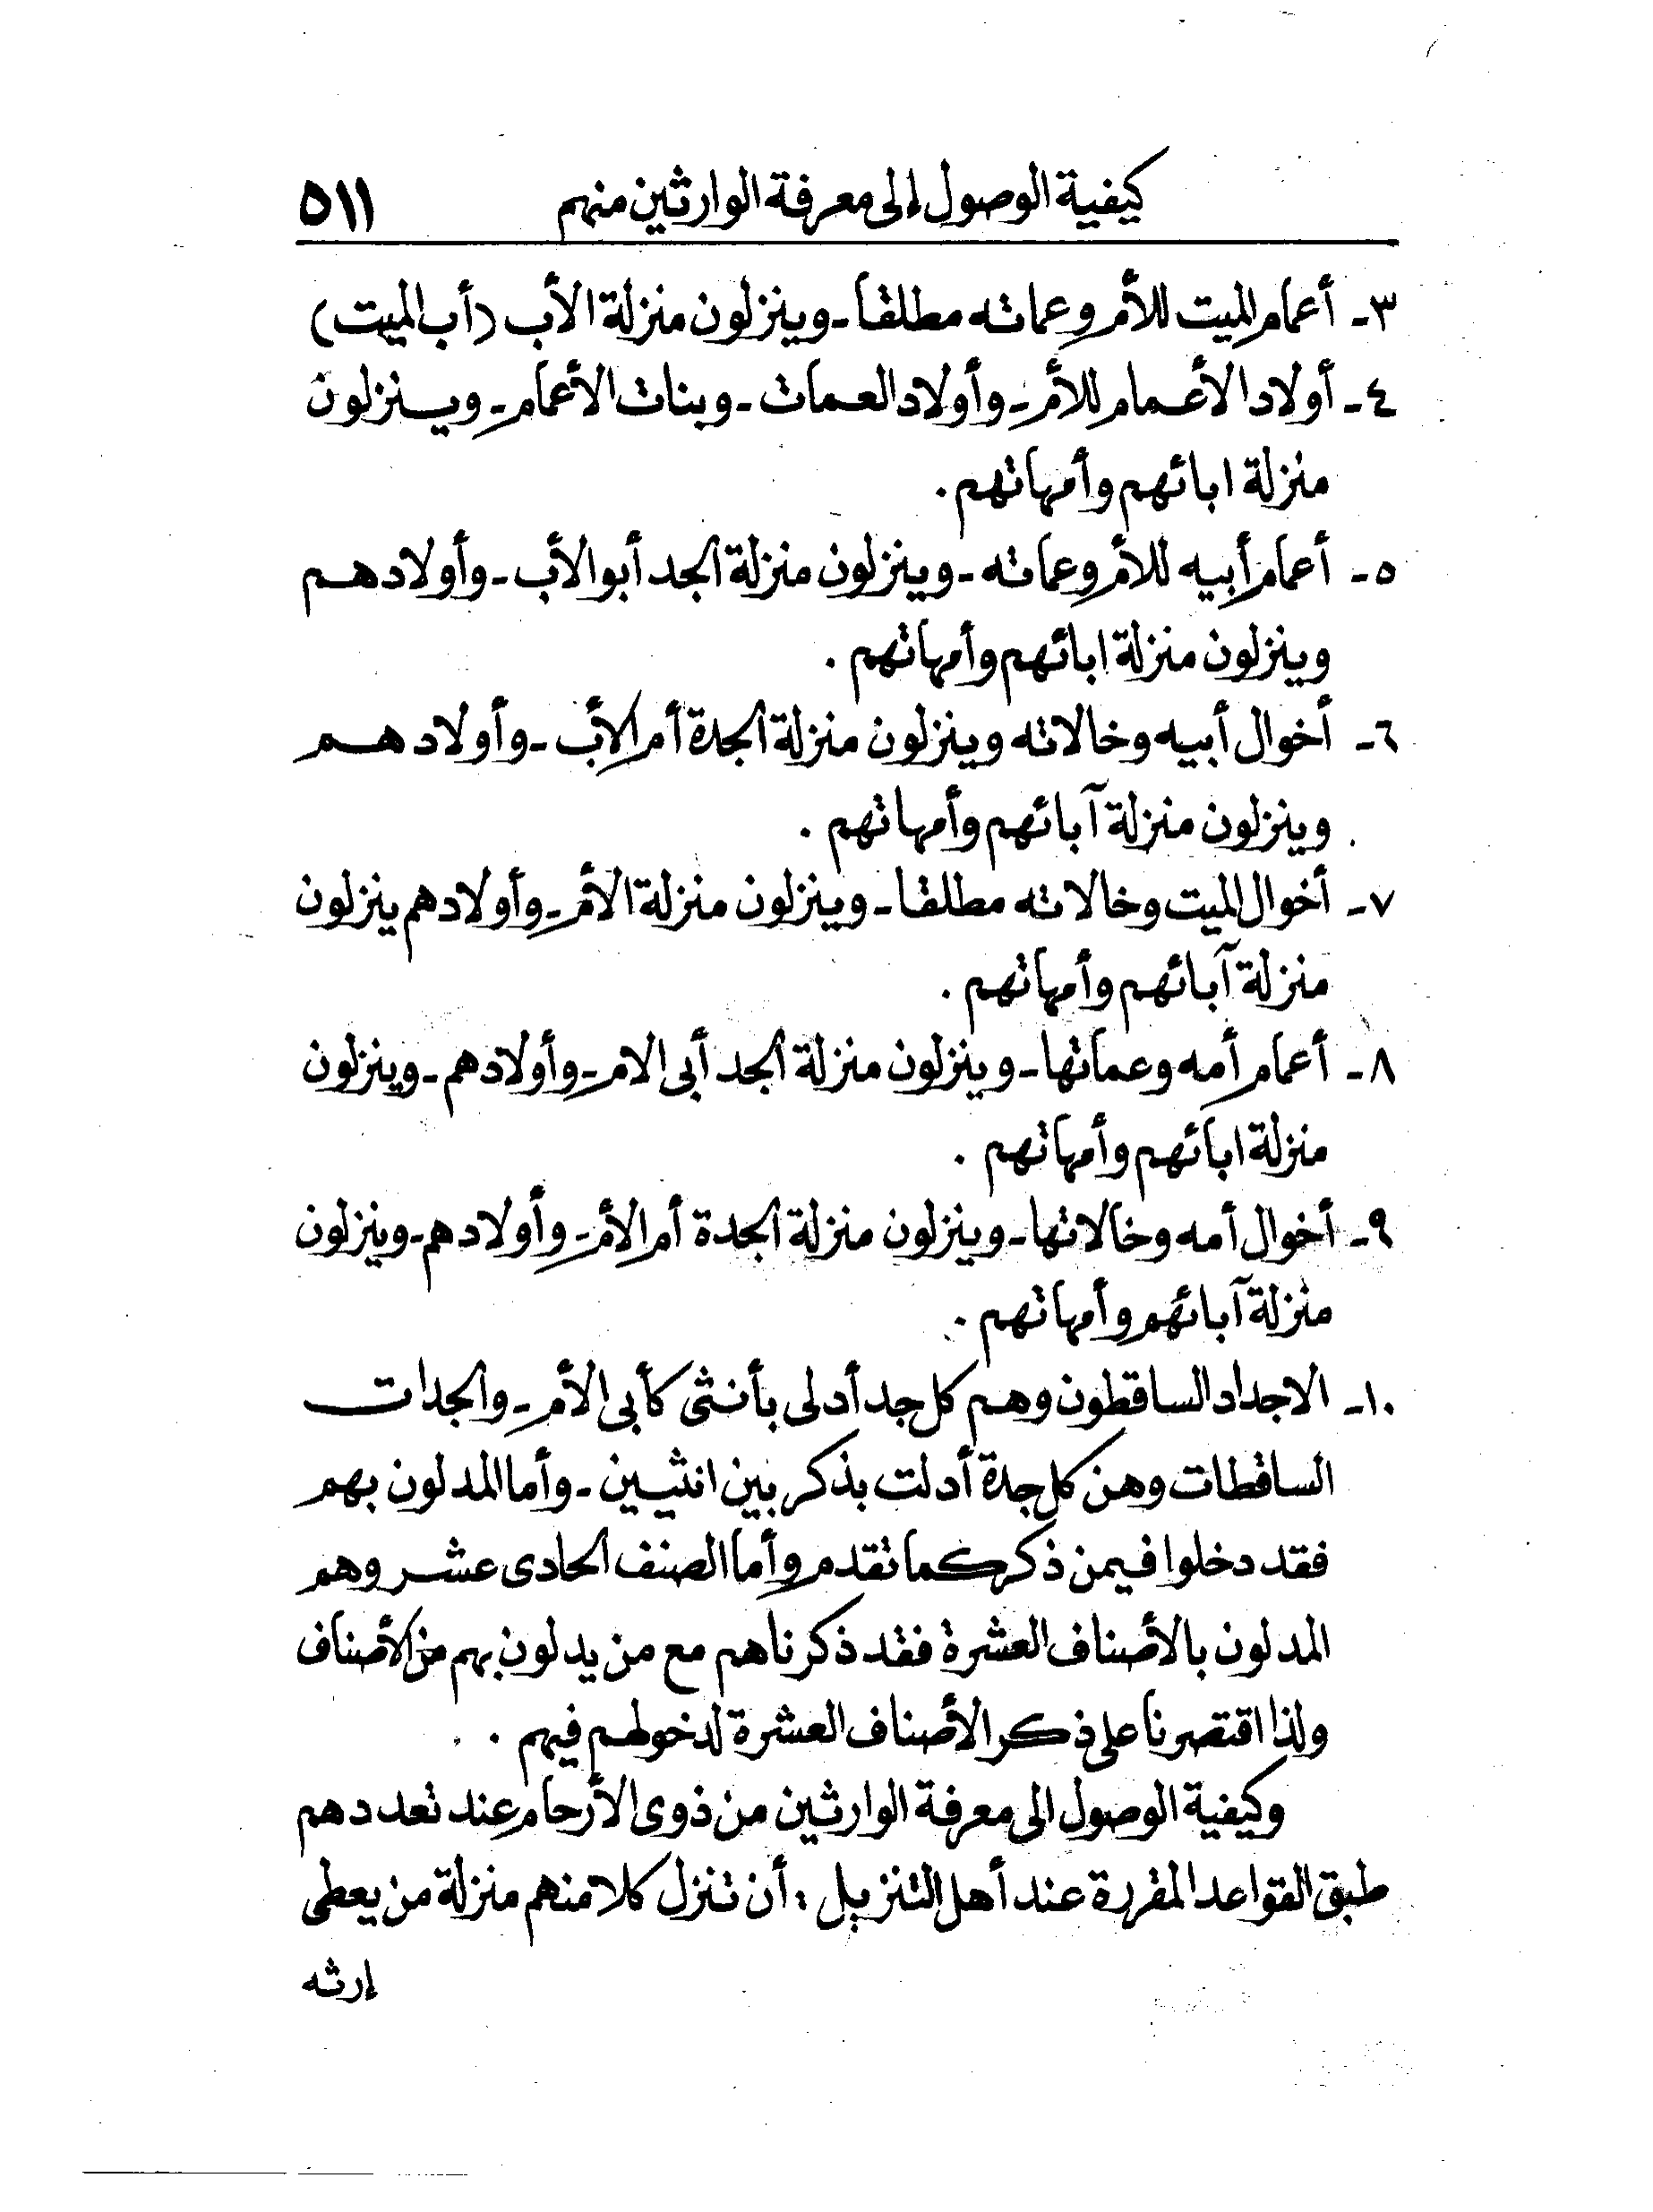 كيفية الوصول إلى معرفة الوارثين منهم ٥١١
٣ـ أعمام الميت للأم وعماته مطلقا ـ وينزلون منزلة الأب (أب الميت)
٤ـ أولاد الأعمام للأم ـ وأولاد العمات ـ وبنات الأعمام ـ وينزلون
منزلة ابائهم وأمهاتهم .
٥ـ أعمام أبيه للأم وعماته ـ وينزلون منزلة الجد أبو الأب ـ وأولادهم
وينزلون منزلة ابائهم وأمهاتهم .
٦ـ أخوال أبيه وخالاته وينزلون منزلة الجدة أم الأب ـ وأولادهم
وينزلون منزلة آبائهم وأمهاتهم .
٧ـ أخوال الميت وخالاته مطلقا ـ وينزلون منزلة الأم ـ وأولادهم ينزلون
منزلة آبائهم وأمهاتهم .
٨ـ أعمام أمه وعماتها ـ وينزلون منزلة الجد أبى الام ـ وأولادهم ـ وينزلون
منزلة ابائهم وأمهاتهم .
٩ـ أخوال أمه وخالاتها ـ وينزلون منزلة الجدة أم الأم ـ وأولادهم ـ وينزلون
منزلة آبائهم وأمهاتهم .
١٠ـ الاجداد الساقطون وهم كل جد أدلى بأنثى كأبى الأم ـ والجدات
الساقطات وهن كل جدة أدلت بذكر بين انثيين ـ وأما المدلون بهم
فقد دخلوا فيمن ذكر كما تقدم وأما الصنف الحادى عشر وهم
المدلون بالأصناف العشرة فقد ذكرناهم مع من يدلون بهم من الأصناف
ولذا اقتصرنا على ذكر الأصناف العشرة لدخولهم فيهم .
وكيفية الوصول الى معرفة الوارثين من ذوى الأرحام عند تعددهم
طبق القواعد المقررة عند أهل التنزيل : أن تنزل كلا منهم منزلة من يعطى
إرثه